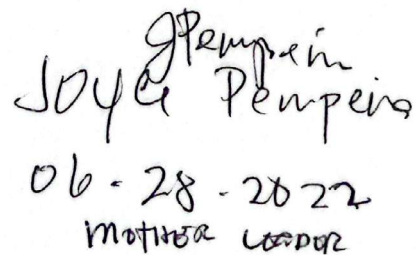 JPempein
Joyce Pempein
06-28-2022
MOTHER LEADER